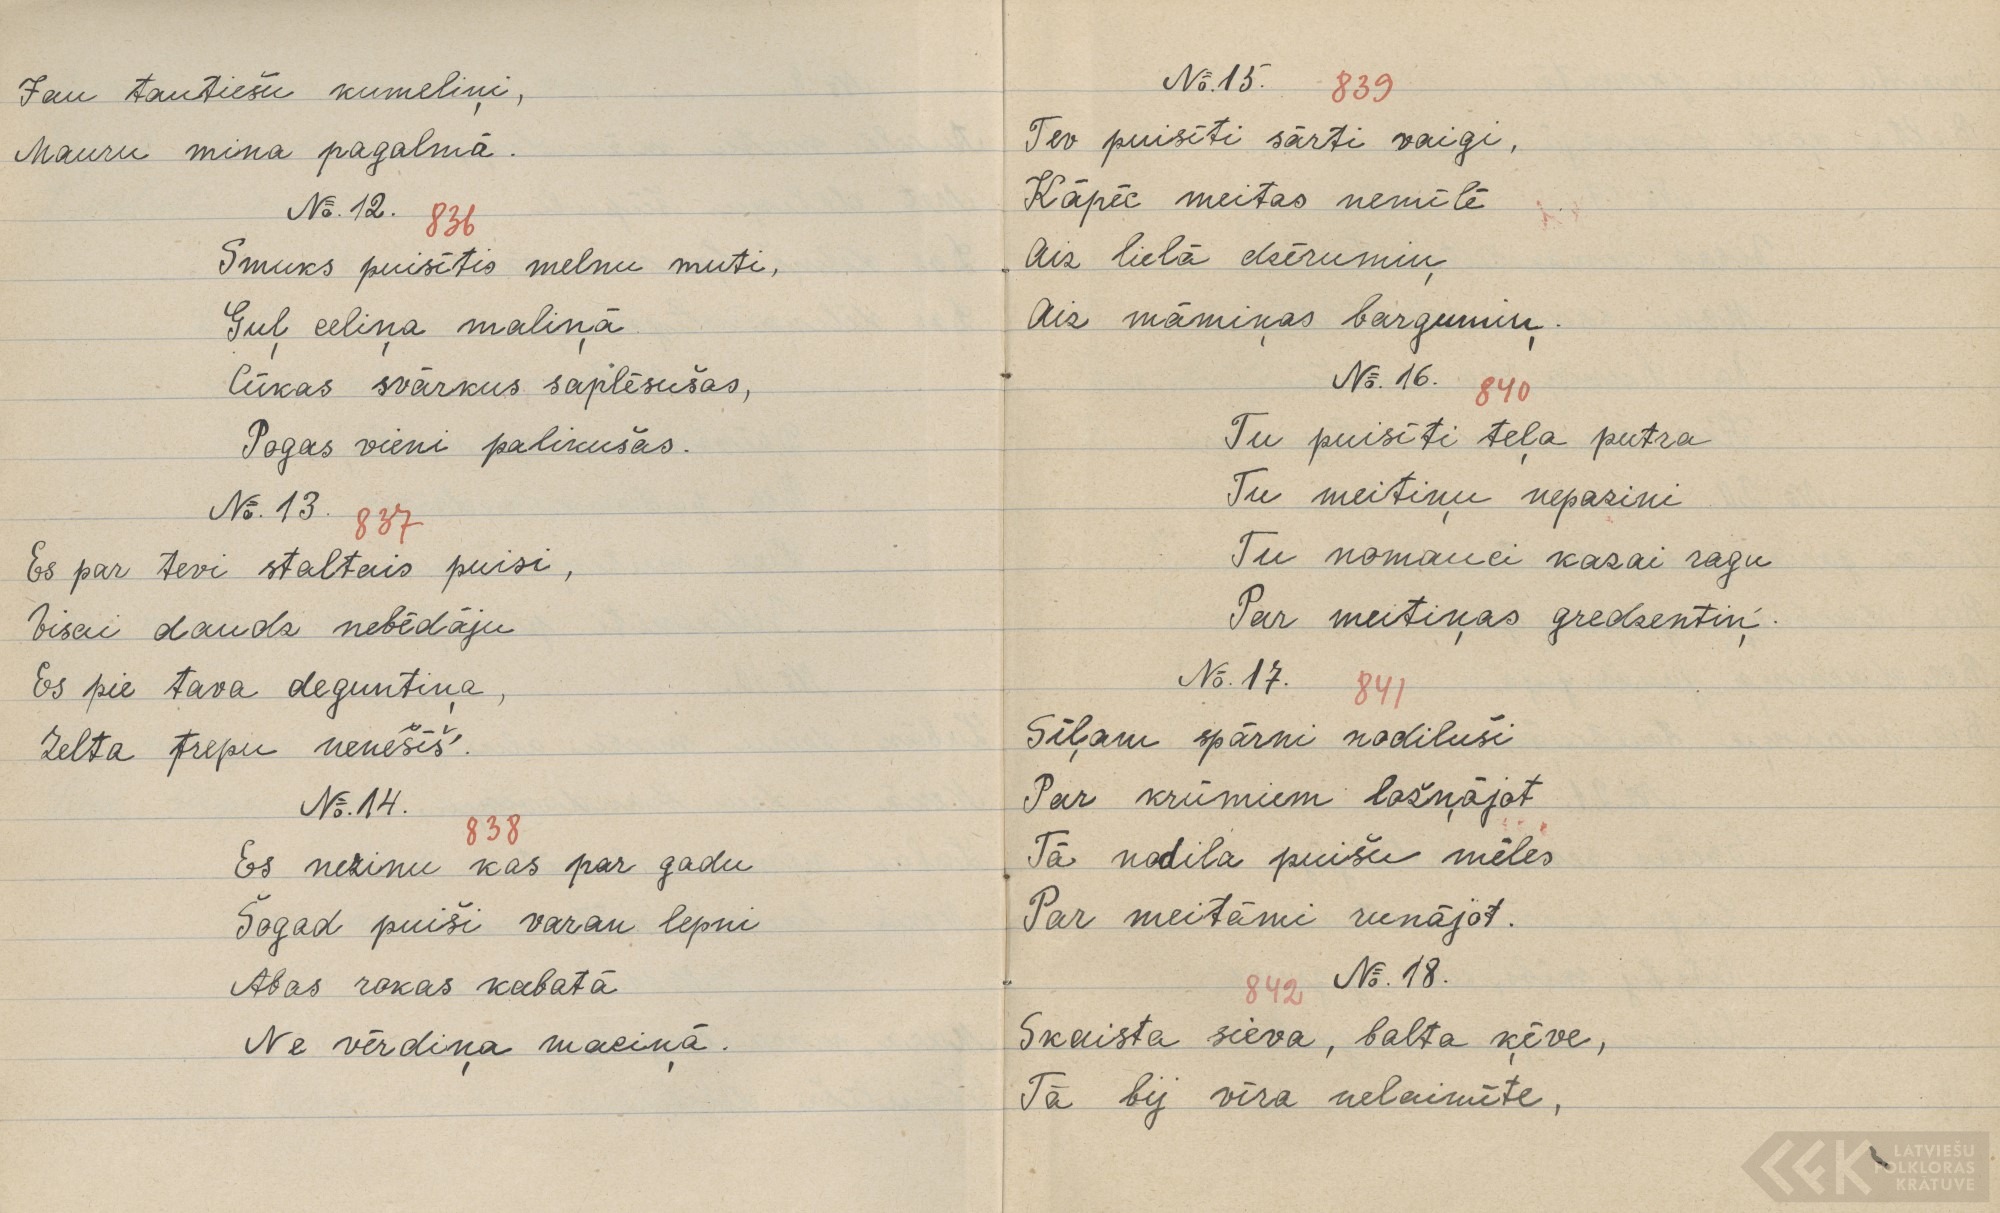 Jau tautiešu kumeliņi,
Mauru mina pagalmā.
No. 12. 836
Smuks puisītis melnu muti,
Guļ celiņa maliņā
Cūkas svārkus saplēsušas,
Pogas vieni palikušas.
No. 13. 837
Es par tevi staltais puisi,
Visai daudz nebēdāju
Es pie tava deguntiņa,
Zelta trepu nenēšīš.
No. 14.
838
Es nezinu kas par gadu
Šogad puiši varan lepni
Abas rokas kabatā
Ne vērdiņa maciņā.
No. 15. 839
Tev puisīti sārti vaigi,
Kāpēc meitas nemīlē
Aiz lielā dzērumiņ
Aiz māmiņas bargumiņ.
No. 16. 840
Tu puisīti teļa putra
Tu meitiņu nepazini
Tu nomauci kazai ragu
Par meitiņas gredzentiņ.
No. 17. 841
Sīļam spārni nodiluši
Par krūmiem ložņājot
Tā nodila puišu mēles
Par meitāmi runājot.
842 No. 18.
Skaista sieva, balta ķēve,
Tā bij vīra nelaimīte,
LATVIEŠU
FOLKLORAS
KRĀTUVE